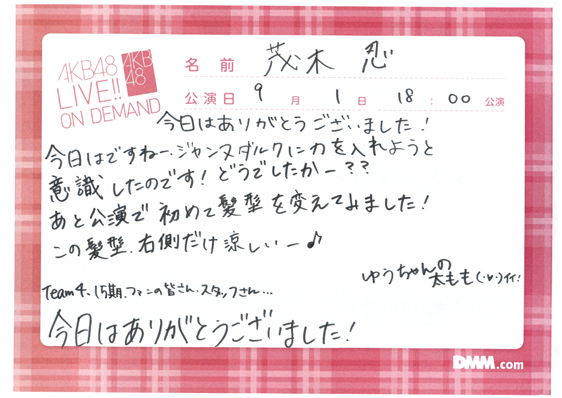 AKB48
LIVE!!
ON DEMAND
AKB
48
名前 茂木 忍
公演日 9月 1日 18:00 公演
今日はありがとうございました!
今日はですねー、ジャンヌダルクに力を入れようと
意識したのです!どうでしたかー??
あと公演で初めて髪型を変えてみました!
この髪型、右側だけ涼しいー♪
ゆうちゃんの
太もも(・∀・)イイ!
Team4、15期、ファンの皆さん、スタッフさん…
今日はありがとうございました!
DMM.com